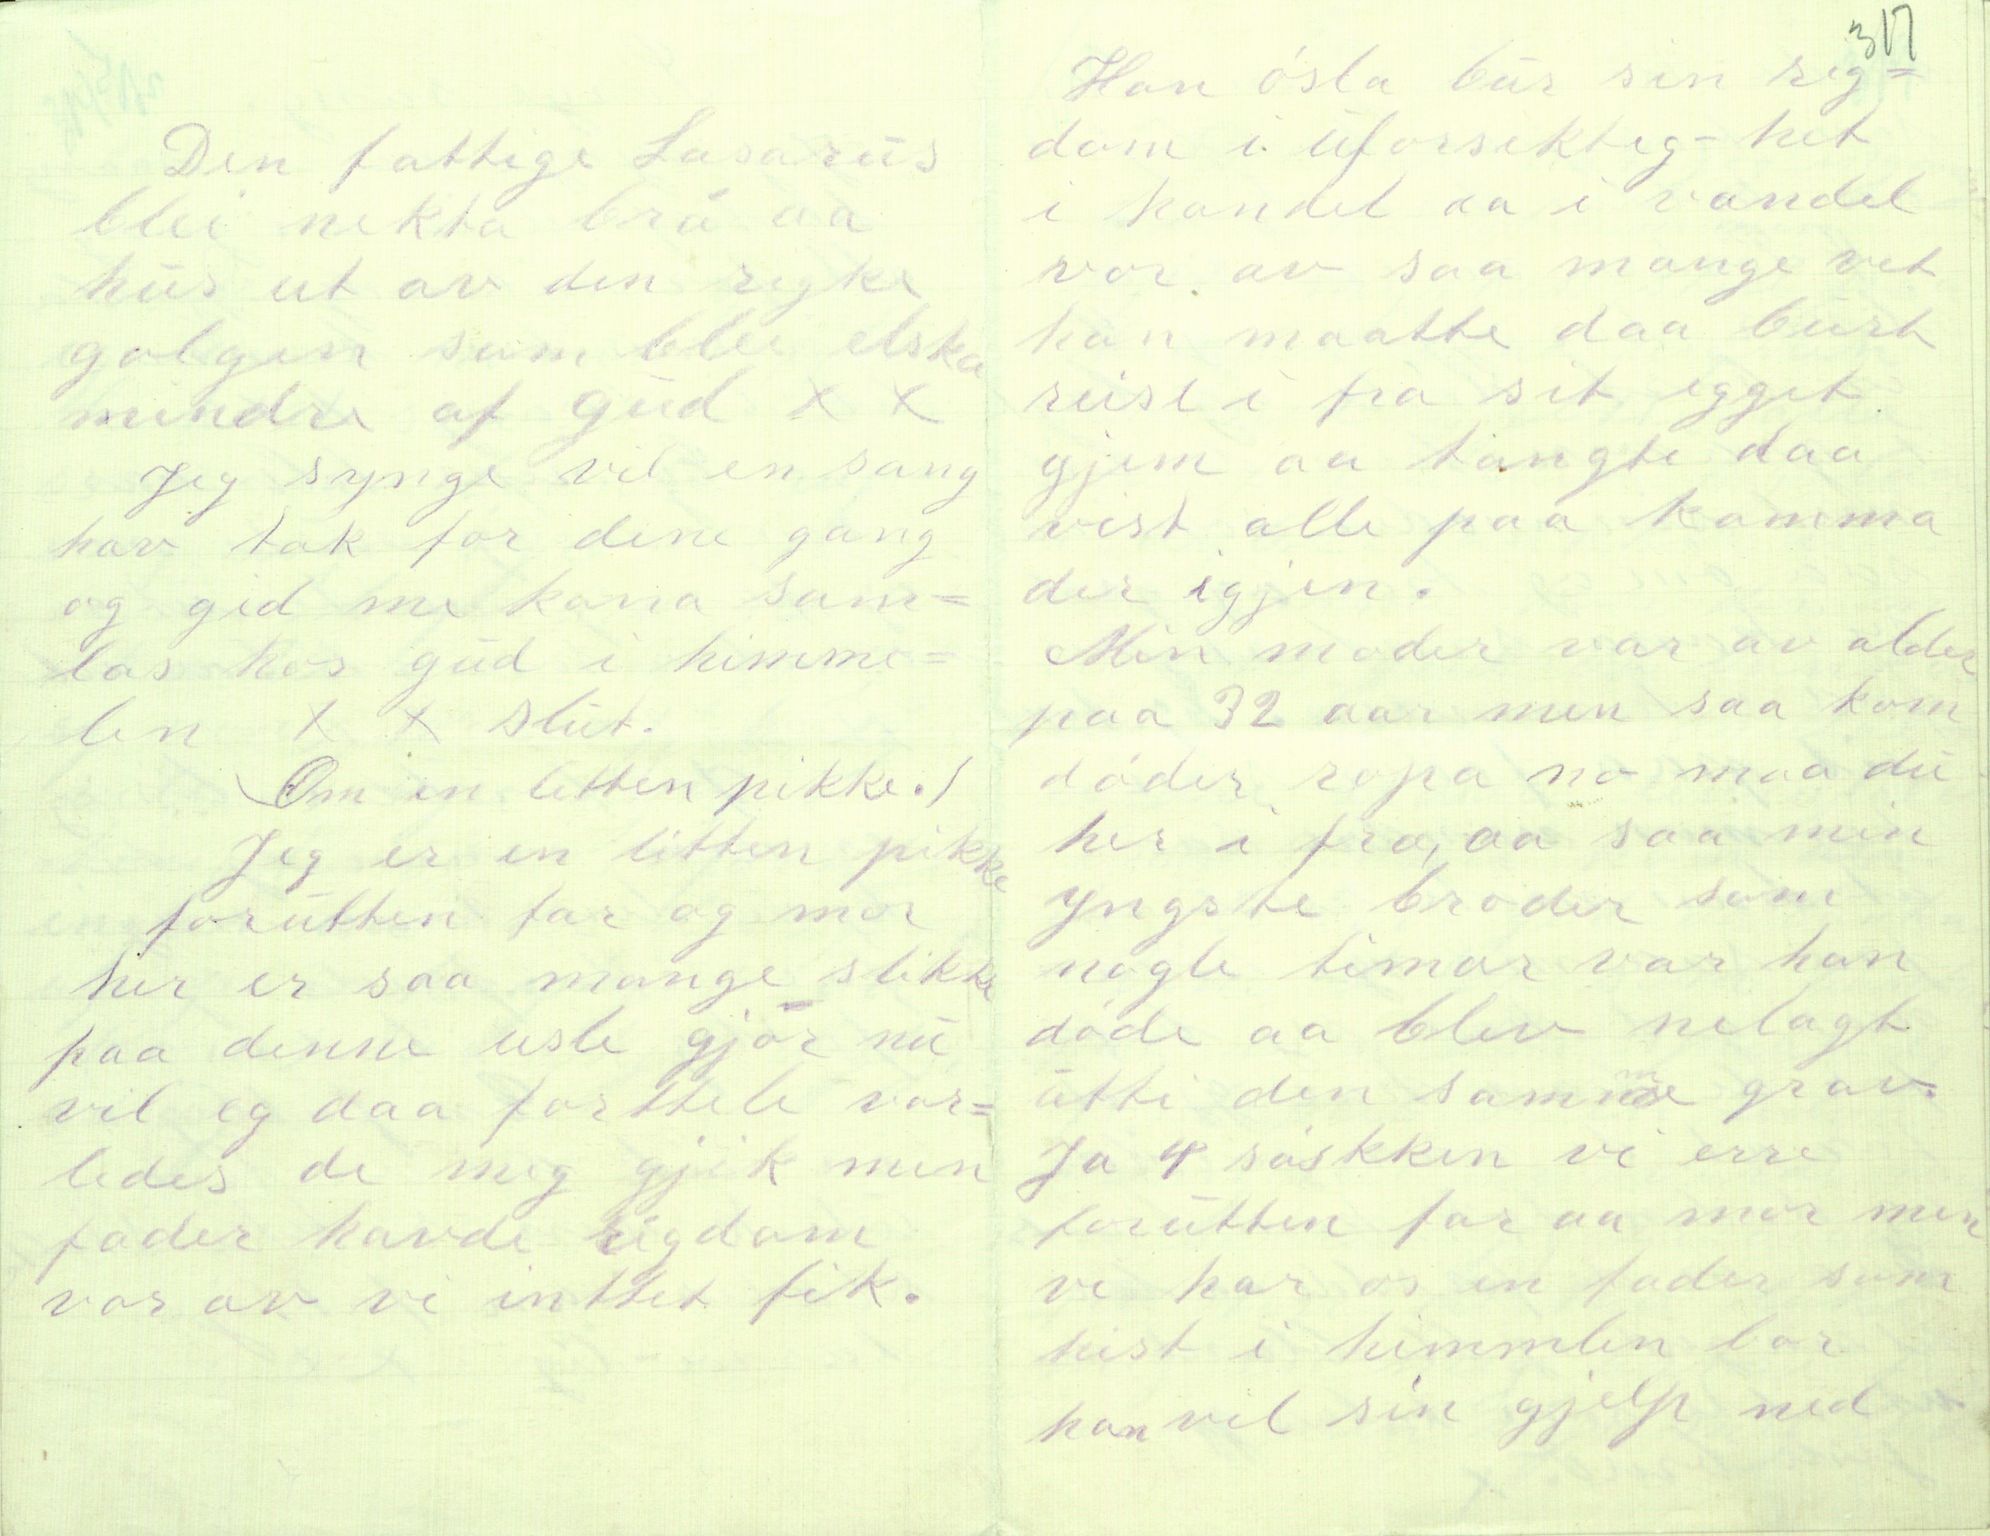 Den fattige Lasarŭs
blei nekta brö aa
hŭs ut av den regke
golgen som blei elska
mindre af gŭd x x
Jeg synge vil en sang
hav tak for dene gang
og gid me kana sam=
las hos gŭd i himme=
len x x slŭt.
(Om en litten pikke.)
Jeg er en litten pikke
forŭtten far og mor
her er saa mange slikke
paa denne usle gjör nŭ
vil eg daa forttele vor=
ledes de meg gjik men
fader havde rigdom
vor av vi inttet fik.
317
Han ósla bŭr sin rig=
dom i ŭforsekteg-het
i handel aa i vandel
vor av saa mange vet
han maatte daa bŭrt
reise i fra sit egget
gjem aa tangte daa
vist alle paa komma
der igjen.
Min moder var av alder
paa 32 aar men saa kom
dóder ropa no maa dŭ
her i fra, aa saa min
yngste broder som
nogle timar var han
dóde aa blev nelagt
ŭtti den samme grav.
Ja 4 sóskken vi erre
forŭtten far aa mor men
vi har os en fader som
hist i himmlen bor
han vil sin gjelp ned